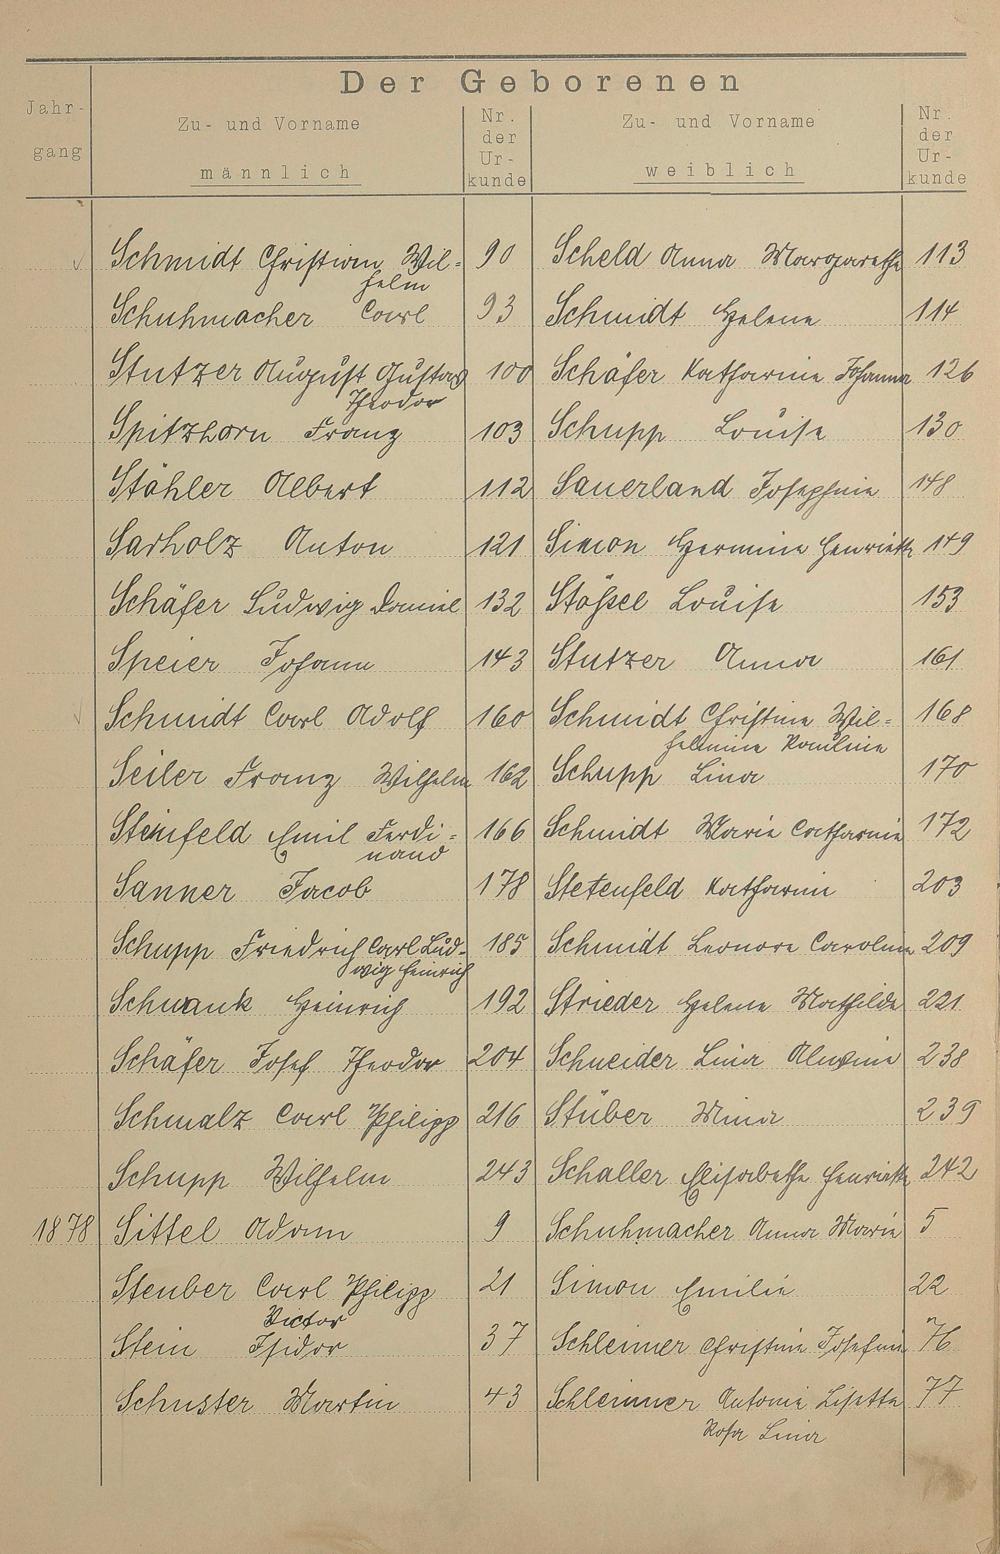 Der Geborenen
Jahr-
gang
Zu- und Vorname
männlich
Nr.
der
Ur-
kunde
Zu- und Vorname
weiblich
Nr.
der
Ur-
kunde
Schmidt Christian Wil- 90 Scheld Anna Margarethe 113
helm
Schuhmacher Carl 93 Schmidt Helene 114
Stutzer August Gustav 100 Schäfer Katharine Johanna 126
Theodor
Spitzhorn Franz 103 Schupp Louise 130
Stähler Albert 112 Sauerland Josephine 148
Sarholz Anton 121 Simon Hermine Henriette 149
Schäfer Ludwig Daniel 132 Stößel Louise 153
Speier Johann 143 Stutzer Anna 161
Schmidt Carl Adolf 160 Schmidt Christine Wil= 168
helmine Pauline
Seiler Franz Wilhelm 162 Schupp Lina 170
Steinfeld Emil Ferdi= 166 Schmidt Marie Catharine 172
nand
Sanner Jacob 178 Stetenfeld Katharine 203
Schupp Friedrich Carl Lud- 185 Schmidt Leonore Caroline 209
wig Heinrich
Schwank Heinrich 192 Strieder Helene Mathilde 221
Schäfer Josef Theodor 204 Schneider Lina Alwine 238
Schmalz Carl Philipp 216 Stüber Mina 239
Schupp Wilhelm 243 Schaller Elisabethe Henriette 242
1878 Sittel Adam 9 Schuhmacher Anna Marie 5
Steuber Carl Philipp 21 Simon Emilie 22
Victor
Stein Isidor 37 Schleimer Christine Josefine 76
Schuster Martin 43 Schleimer Antonie Lisette 77
Rosa Lina